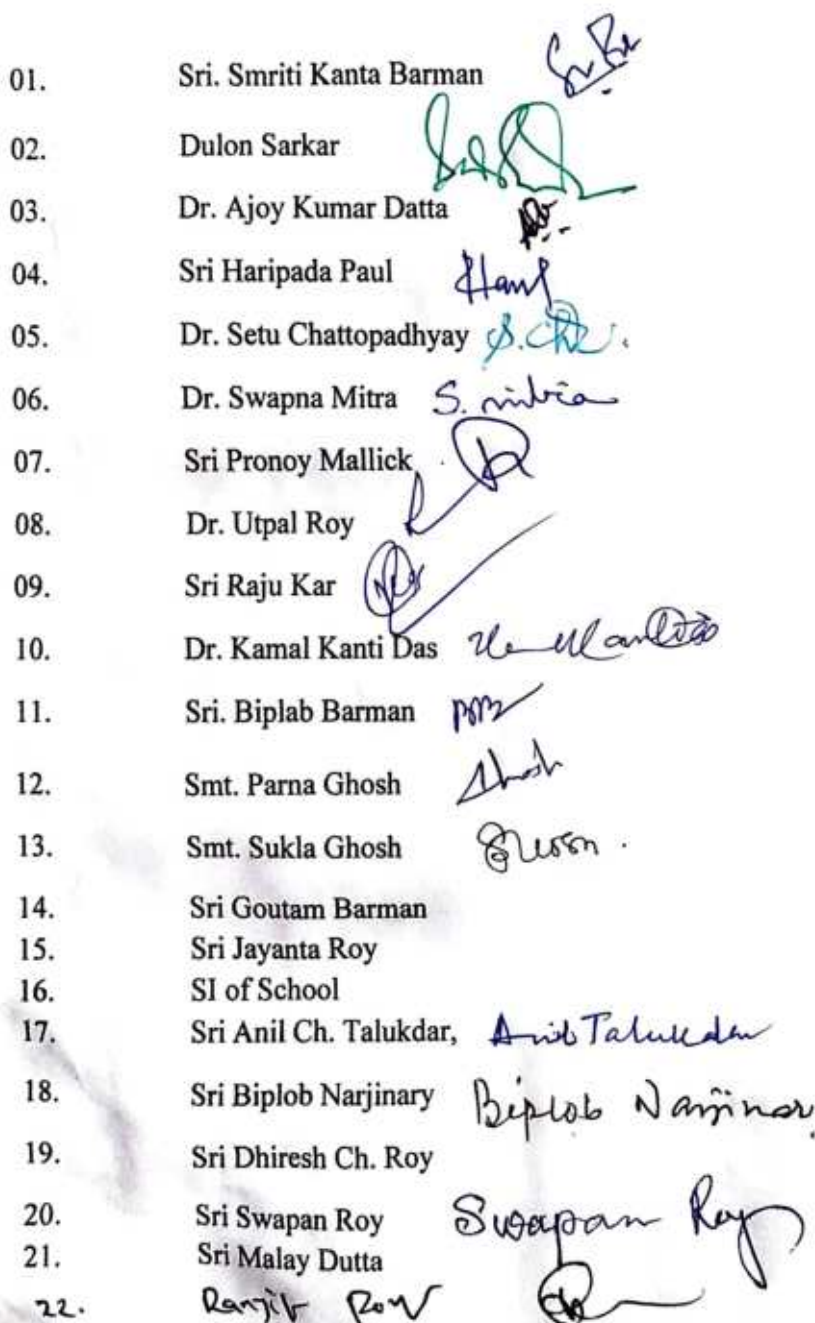 01. Sri. Smriti Kanta Barman
02. Dulon Sarkar
03. Dr. Ajoy Kumar Datta
04. Sri Haripada Paul
05. Dr. Setu Chattopadhyay
06. Dr. Swapna Mitra S. mitra
07. Sri Pronoy Mallick
08. Dr. Utpal Roy
09. Sri Raju Kar
10. Dr. Kamal Kanti Das
11. Sri. Biplab Barman
12. Smt. Parna Ghosh
13. Smt. Sukla Ghosh
14. Sri Goutam Barman
15. Sri Jayanta Roy
16. SI of School
17. Sri Anil Ch. Talukdar, Anil Talukdar
18. Sri Biplob Narjinary Biplob Narjinary
19. Sri Dhiresh Ch. Roy
20. Sri Swapan Roy Swapan Roy
21. Sri Malay Dutta
22. Ranjit Roy